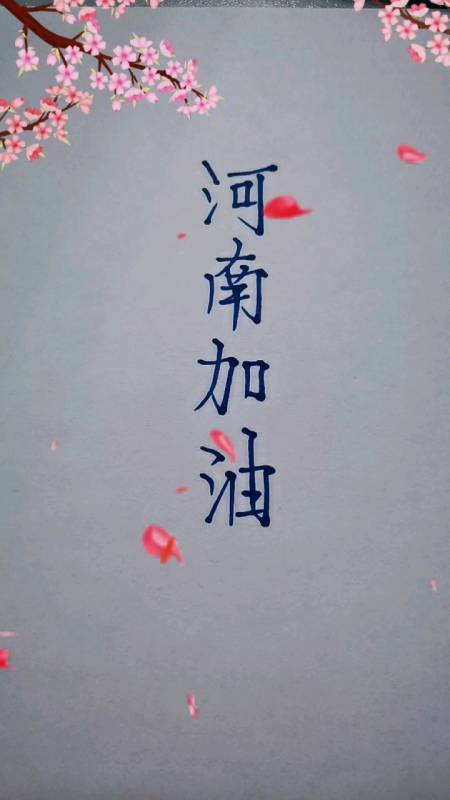 河南加油